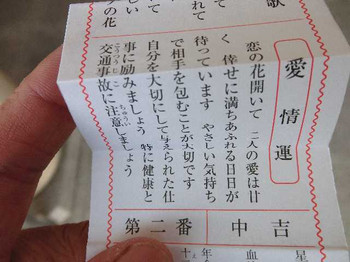 歌
れて
しい
の花
愛情運
恋の花開いて 二人の愛は甘
く 倖せに満ちあふれる日日が
待っています やさしい気持ち
で相手を包むことが大切です
自分を大切にして与えられた仕
事に励みましょう 特に健康と
交通事故に注意しましょう
中吉
第二番
星
血
年
十